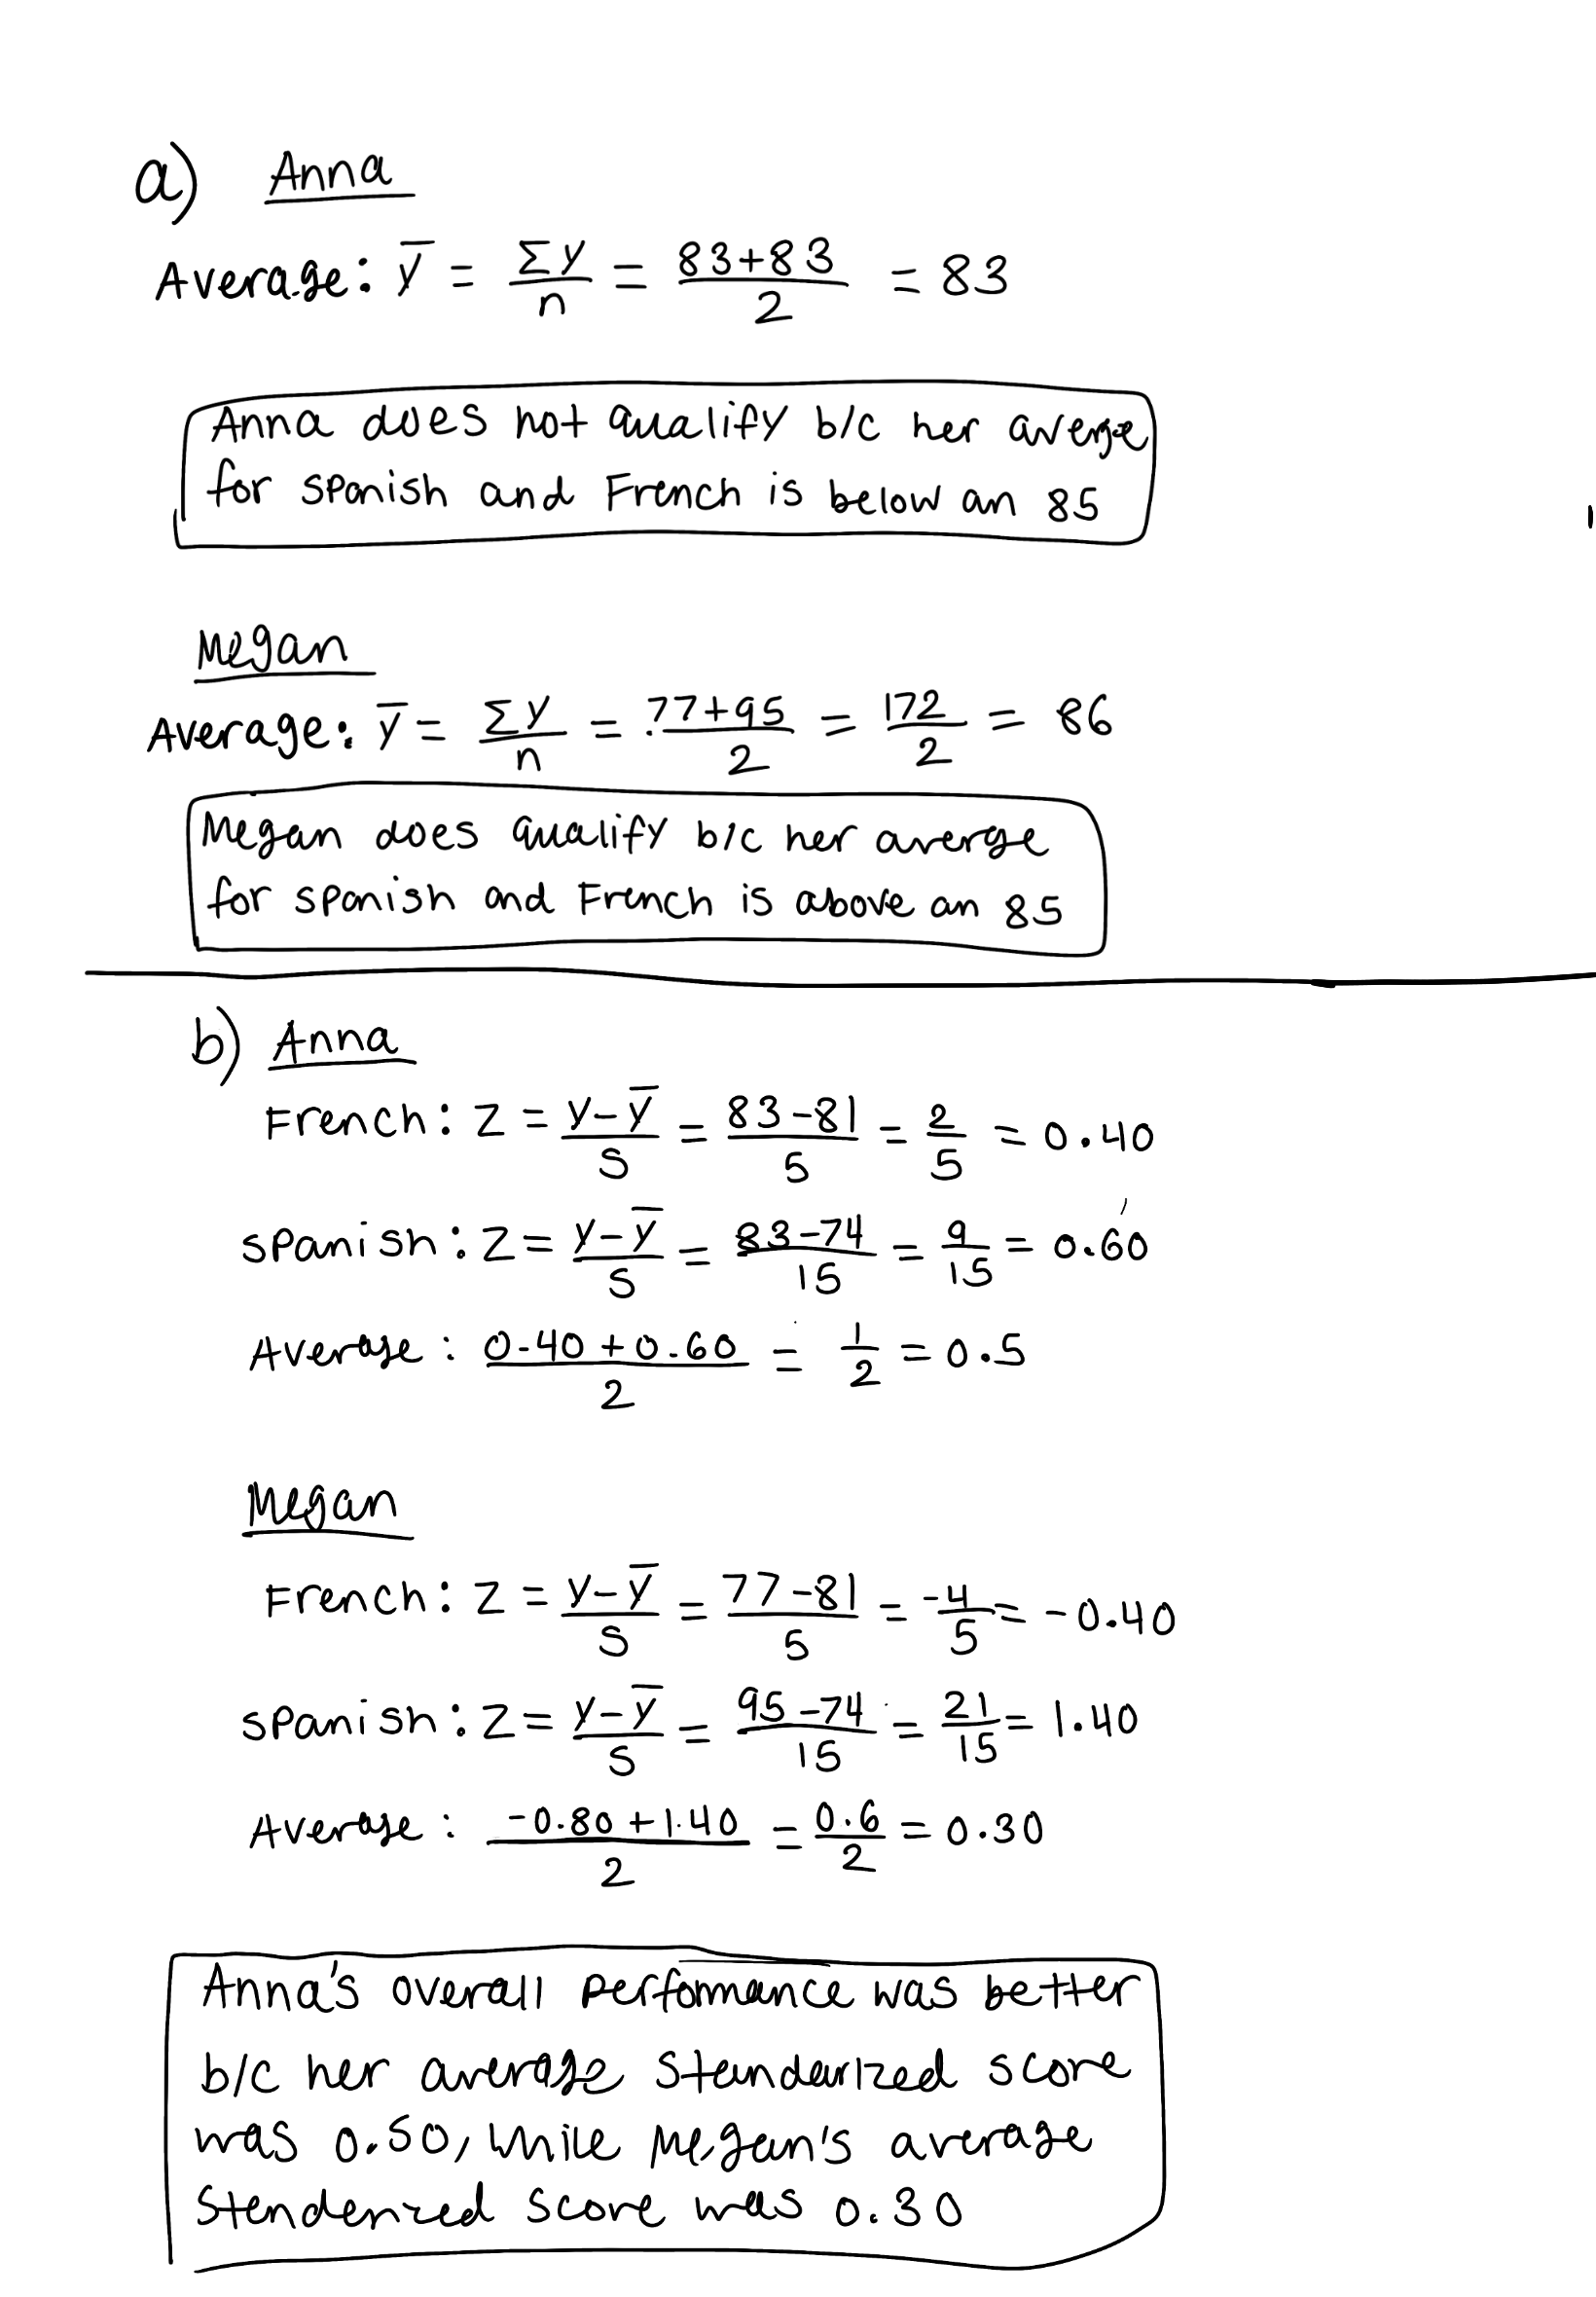 a) Anna
Average: ȳ = Σy/n = 83+83/2 = 83
Anna does not qualify b/c her averge
for spanish and French is below an 85
Megan
Average: ȳ = Σy/n = 77+95/2 = 172/2 = 86
Megan does qualify b/c her averge
for spanish and French is above an 85
b) Anna
French: Z = y-ȳ/S = 83-81/5 = 2/5 = 0.40
spanish: Z = y-ȳ/S = 83-74/15 = 9/15 = 0.60
Average: 0.40+0.60/2 = 1/2 = 0.5
Megan
French: Z = y-ȳ/S = 77-81/5 = -4/5 = -0.40
spanish: Z = y-ȳ/S = 95-74/15 = 21/15 = 1.40
Average: -0.80+1.40/2 = 0.6/2 = 0.30
Anna's overall performance was better
b/c her average standarized score
was 0.50, while Megan's average
standerized score was 0.30